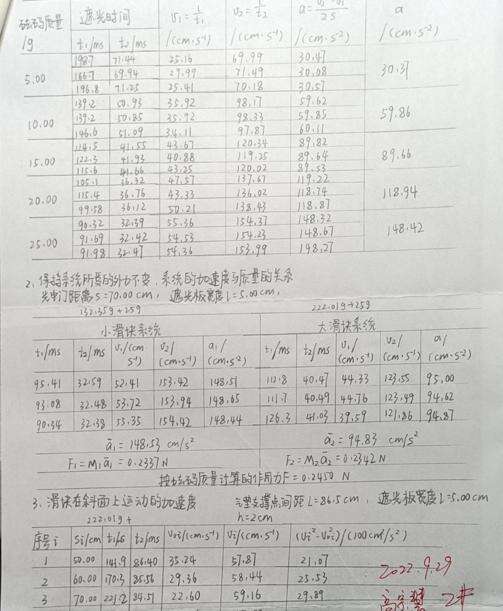 砝码质量 遮光时间 v₁=1/t₁ v₂=1/t₂ a= a
/g t₁/ms t₂/ms /(cm·s⁻¹) /(cm·s⁻¹) /(cm·s⁻²) /(cm·s⁻²)
5.00 30.37
198.7 71.44 25.16 69.99 30.47
166.7 69.94 29.99 71.49 30.08
196.8 71.25 25.41 70.18 30.57
10.00 59.86
139.2 50.93 35.92 98.17 59.62
139.2 50.85 35.92 98.33 59.85
146.6 51.09 34.11 97.87 60.11
15.00 89.66
114.5 41.55 43.67 120.34 89.82
122.3 41.93 40.88 119.25 89.64
115.6 41.66 43.25 120.02 89.53
20.00 118.94
105.1 36.32 47.57 137.67 119.22
115.4 36.76 43.33 136.02 118.74
99.58 36.12 50.21 138.43 118.87
25.00 148.42
90.32 32.39 55.36 154.37 148.32
91.69 32.42 54.53 154.23 148.67
91.98 32.47 54.36 153.99 148.27
2、保持系统所受的外力不变，系统的加速度与质量的关系
光电门距离s=70.00cm，遮光板宽度l=5.00cm，
132.35g+25g 222.01g+25g
小滑块系统 大滑块系统
t₁/ms t₂/ms v₁/(cm·s⁻¹) v₂/(cm·s⁻¹) a₁/(cm·s⁻²) t₁/ms t₂/ms v₁/(cm·s⁻¹) v₂/(cm·s⁻¹) a/(cm·s⁻²)
95.41 32.59 52.41 153.42 148.51 112.8 40.47 44.33 123.55 95.00
93.08 32.48 53.72 153.94 148.65 111.7 40.49 44.76 123.49 94.62
90.34 32.38 55.35 154.42 148.44 126.3 41.03 39.59 121.86 94.87
ā₁=148.53 cm/s² ā₂=94.83 cm/s²
F₁=M₁ā₁=0.2337N F₂=M₂ā₂=0.2342N
按砝码质量计算的作用力F=0.2450 N
3、滑块在斜面上运动的加速度 气垫支撑点间距L=86.5cm，遮光板宽度l=5.00cm
222.01g+ h=2cm
序号i Si/cm t₁/s t₂/ms v₀i/(cm·s⁻¹) vi/(cm·s⁻¹) (vi²-v₀i²)/(100cm²/s²)
1 50.00 141.9 86.40 35.24 57.87 21.07
2 60.00 170.3 85.56 29.36 58.44 25.53
3 70.00 221.2 84.51 22.60 59.16 29.89
2022.9.29
2#